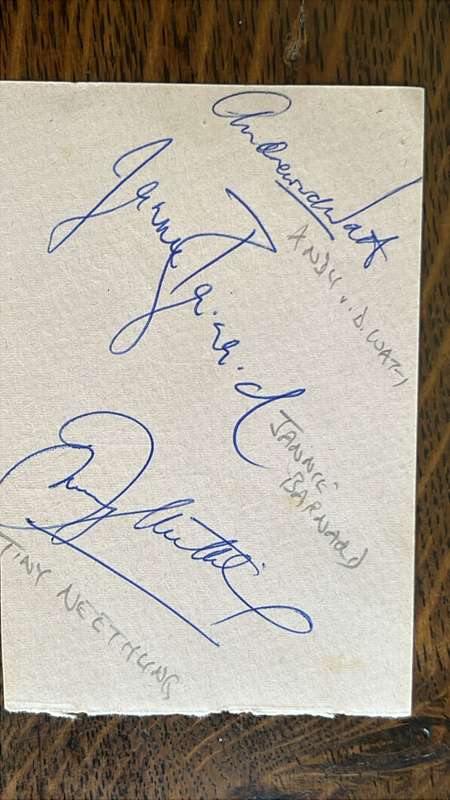 Andrew vd Watt
ANDY v. D. WATT
Jannie Barnard
JANNIE
BARNARD
Tiny Neethling
TINY NEETHLING